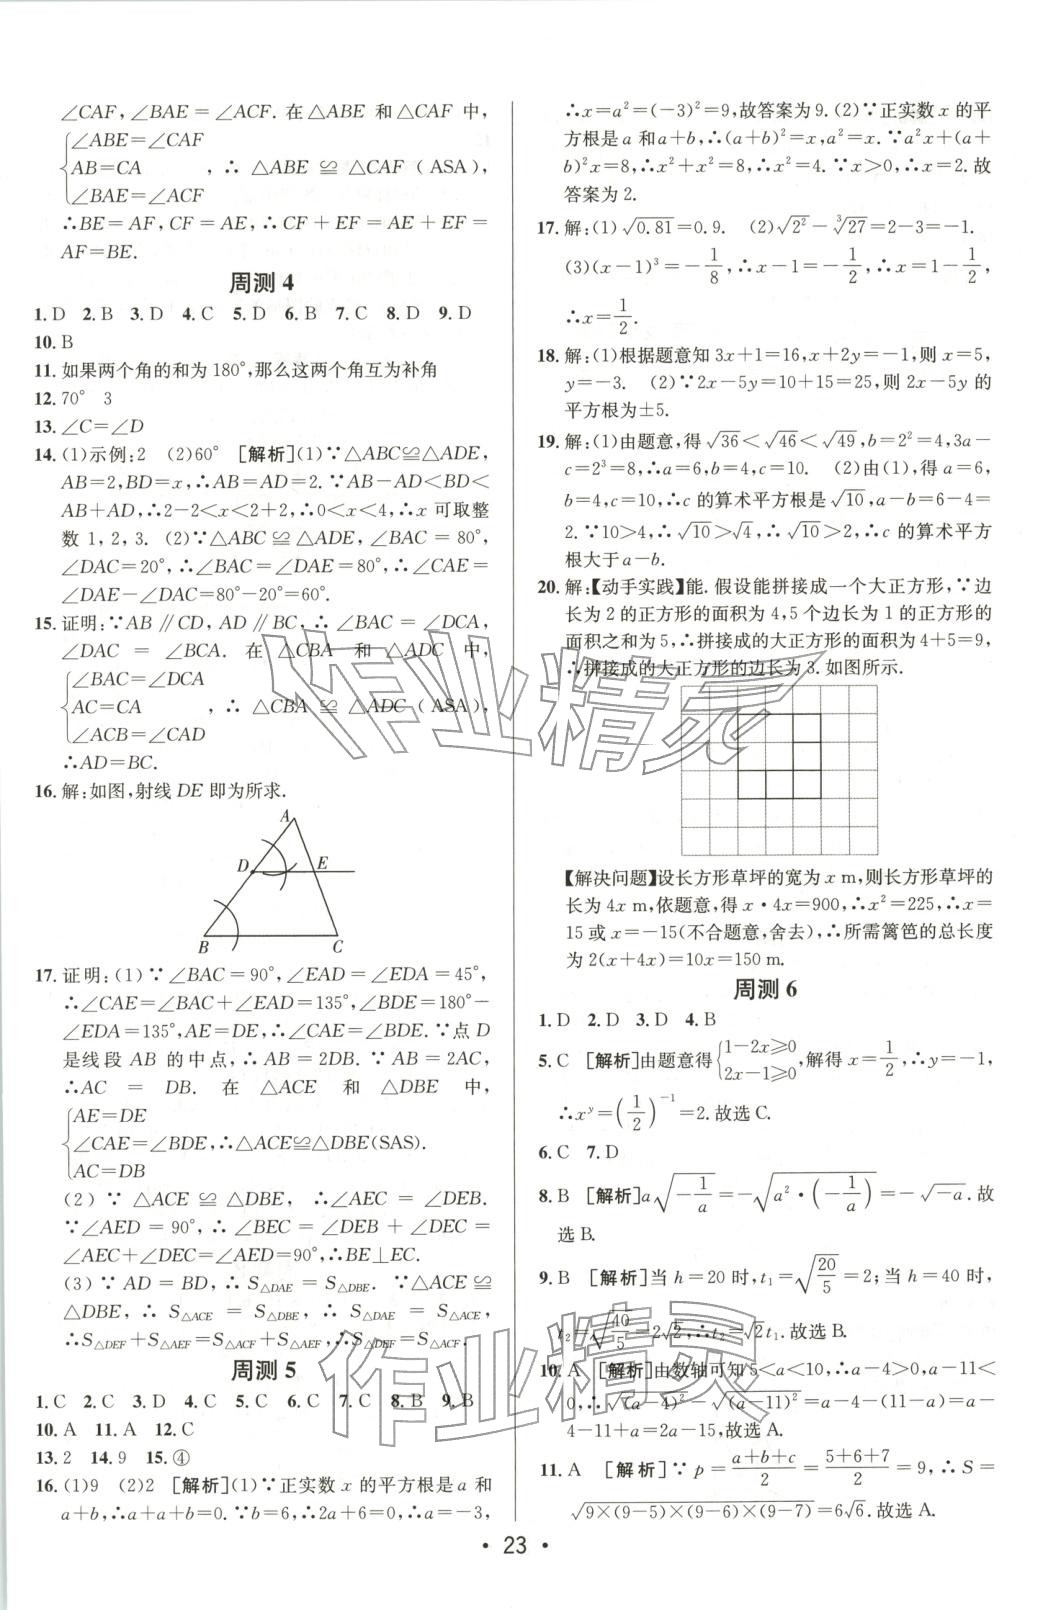 ∠CAF,∠BAE=∠ACF.在△ABE 和△CAF 中,
{∠ABE=∠CAF
AB=CA ,∴△ABE≌△CAF(ASA),
∠BAE=∠ACF
∴BE=AF,CF=AE,∴CF+EF=AE+EF=
AF=BE.
周测4
1.D 2.B 3.D 4.C 5.D 6.B 7.C 8.D 9.D
10.B
11.如果两个角的和为180°,那么这两个角互为补角
12.70° 3
13.∠C=∠D
14.(1)示例:2 (2)60° [解析](1)∵△ABC≌△ADE,
AB=2,BD=x,∴AB=AD=2.∵AB-AD<BD<
AB+AD,∴2-2<x<2+2,∴0<x<4,∴x 可取整
数1,2,3. (2)∵△ABC≌△ADE,∠BAC=80°,
∠DAC=20°,∴∠BAC=∠DAE=80°,∴∠CAE=
∠DAE-∠DAC=80°-20°=60°.
15.证明:∵AB∥CD,AD∥BC,∴∠BAC=∠DCA,
∠DAC=∠BCA.在△CBA 和△ADC 中,
{∠BAC=∠DCA
AC=CA ,∴△CBA≌△ADC(ASA),
∠ACB=∠CAD
∴AD=BC.
16.解:如图,射线DE即为所求.
A
D E
B C
17.证明:(1)∵∠BAC=90°,∠EAD=∠EDA=45°,
∴∠CAE=∠BAC+∠EAD=135°,∠BDE=180°-
∠EDA=135°,AE=DE,∴∠CAE=∠BDE.∵点D
是线段AB的中点,∴AB=2DB.∵AB=2AC,
∴AC=DB.在△ACE和△DBE中,
{AE=DE
∠CAE=∠BDE,∴△ACE≌△DBE(SAS).
AC=DB
(2)∵△ACE≌△DBE,∴∠AEC=∠DEB.
∵∠AED=90°,∴∠BEC=∠DEB+∠DEC=
∠AEC+∠DEC=∠AED=90°,∴BE⊥EC.
(3)∵AD=BD,∴S△DAE=S△DBE.∵△ACE≌
△DBE,∴S△ACE=S△DBE,∴S△DAE=S△ACE,
∴S△DEF+S△AEF=S△ACF+S△AEF,∴S△DEF=S△ACF.
周测5
1.C 2.C 3.D 4.C 5.C 6.C 7.C 8.B 9.B
10.A 11.A 12.C
13.2 14.9 15.④
16.(1)9 (2)2 [解析](1)∵正实数x的平方根是a和
a+b,∴a+a+b=0.∵b=6,∴2a+6=0,∴a=-3,
∴x=a²=(-3)²=9,故答案为9.(2)∵正实数x的平
方根是a和a+b,∴(a+b)²=x,a²=x.∵a²x+(a+
b)²x=8,∴x²+x²=8,∴x²=4.∵x>0,∴x=2.故
答案为2.
17.解:(1)√0.81=0.9. (2)√2²-³√27=2-3=-1.
(3)(x-1)³=-1/8,∴x-1=-1/2,∴x=1-1/2,
∴x=1/2.
18.解:(1)根据题意知3x+1=16,x+2y=-1,则x=5,
y=-3. (2)∵2x-5y=10+15=25,则2x-5y的
平方根为±5.
19.解:(1)由题意,得√36<√46<√49,b=2²=4,3a-
c=2³=8,∴a=6,∴c=10. (2)由(1),得a=6,
b=4,c=10,∴c的算术平方根是√10,a-b=6-4=
2.∵10>4,∴√10>√4,∴√10>2,∴c的算术平方
根大于a-b.
20.解:【动手实践】能.假设能拼接成一个大正方形,∵边
长为2的正方形的面积为4,5个边长为1的正方形的
面积之和为5,∴拼接成的大正方形的面积为4+5=9,
∴拼接成的大正方形的边长为3.如图所示.
【解决问题】设长方形草坪的宽为x m,则长方形草坪的
长为4x m,依题意,得x·4x=900,∴x²=225,∴x=
15或x=-15(不合题意,舍去),∴所需篱笆的总长度
为2(x+4x)=10x=150 m.
周测6
1.D 2.D 3.D 4.B
5.C [解析]由题意得{1-2x≥0 2x-1≥0,解得x=1/2,∴y=-1,
∴x^y=(1/2)^-1=2.故选C.
6.C 7.D
8.B [解析]a√(-1/a)=-√(a²·(-1/a))=-√-a.故
选B.
9.B [解析]当h=20时,t₁=√(20/5)=2;当h=40时,
t₂=√(40/5)=2√2,∴t₂=√2t₁.故选B.
10.A [解析]由数轴可知5<a<10,∴a-4>0,a-11<
0,∴√(a-4)²-√(a-11)²=a-4-(11-a)=a-
4-11+a=2a-15,故选A.
11.A [解析]∵p=(a+b+c)/2=(5+6+7)/2=9,∴S=
√9×(9-5)×(9-6)×(9-7)=6√6.故选A.
·23·
作业精灵
作业精灵